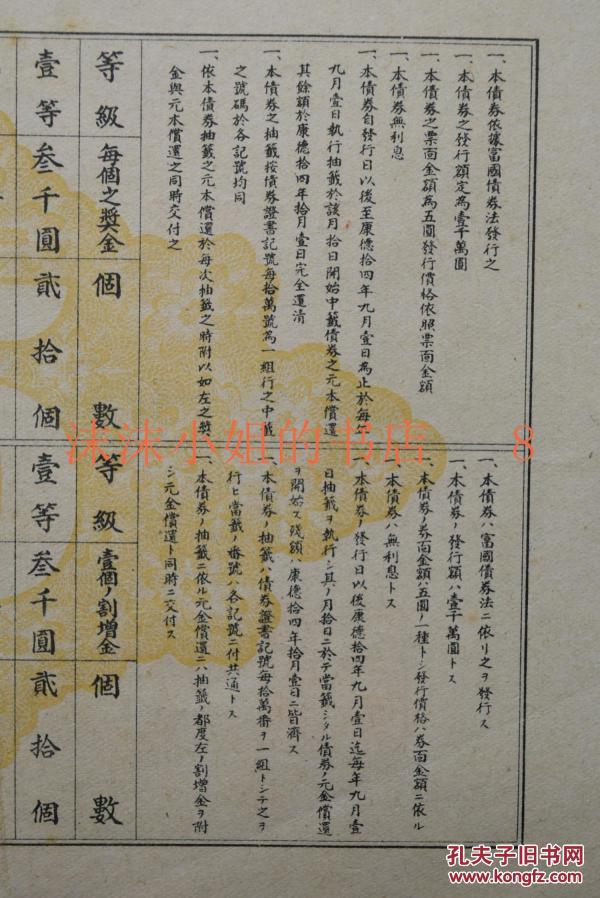 一、本債券依據富國債券法發行之
一、本債券之發行額定為壹千萬圓
一、本債券之票面金額為五圓發行價格依照票面金額
一、本債券無利息
一、本債券自發行日以後至康德拾四年九月壹日為止於每年
九月壹日執行抽籤於該月拾日開始中籤債券之元本償還
其餘額於康德拾四年拾月壹日完全還清
一、本債券之抽籤按債券證書記號每拾萬號為一組行之中籤
之號碼於各記號均同
一、依本債券抽籤之元本償還於每次抽籤之時附以如左之獎
金與元本償還之同時交付之
等級 每個之獎金 個數
壹等 叁千圓 貳拾個
一、本債券ハ富國債券法ニ依リ之ヲ發行ス
一、本債券ノ發行額ハ壹千萬圓トス
一、本債券ノ券面金額ハ五圓ノ一種トシ發行價格ハ券面金額ニ依ル
一、本債券ハ無利息トス
一、本債券ノ發行日以後康德拾四年九月壹日迄每年九月壹
日抽籤ヲ執行シ其ノ月拾日ニ於テ當籤シタル債券ノ元金償還
ヲ開始ス殘額ハ康德拾四年拾月壹日ニ皆濟ス
一、本債券ノ抽籤ハ債券證書記號每拾萬番ヲ一組トシテ之ヲ
行ヒ當籤ノ番號ハ各記號ニ付共通トス
一、本債券ノ抽籤ニ依ル元金償還ニハ抽籤ノ都度左ノ割增金ヲ附
シ元金償還ト同時ニ交付ス
等級 壹個ノ割增金 個數
壹等 叁千圓 貳拾個
沫沫小姐的书店 8
孔夫子旧书网
www.kongfz.com